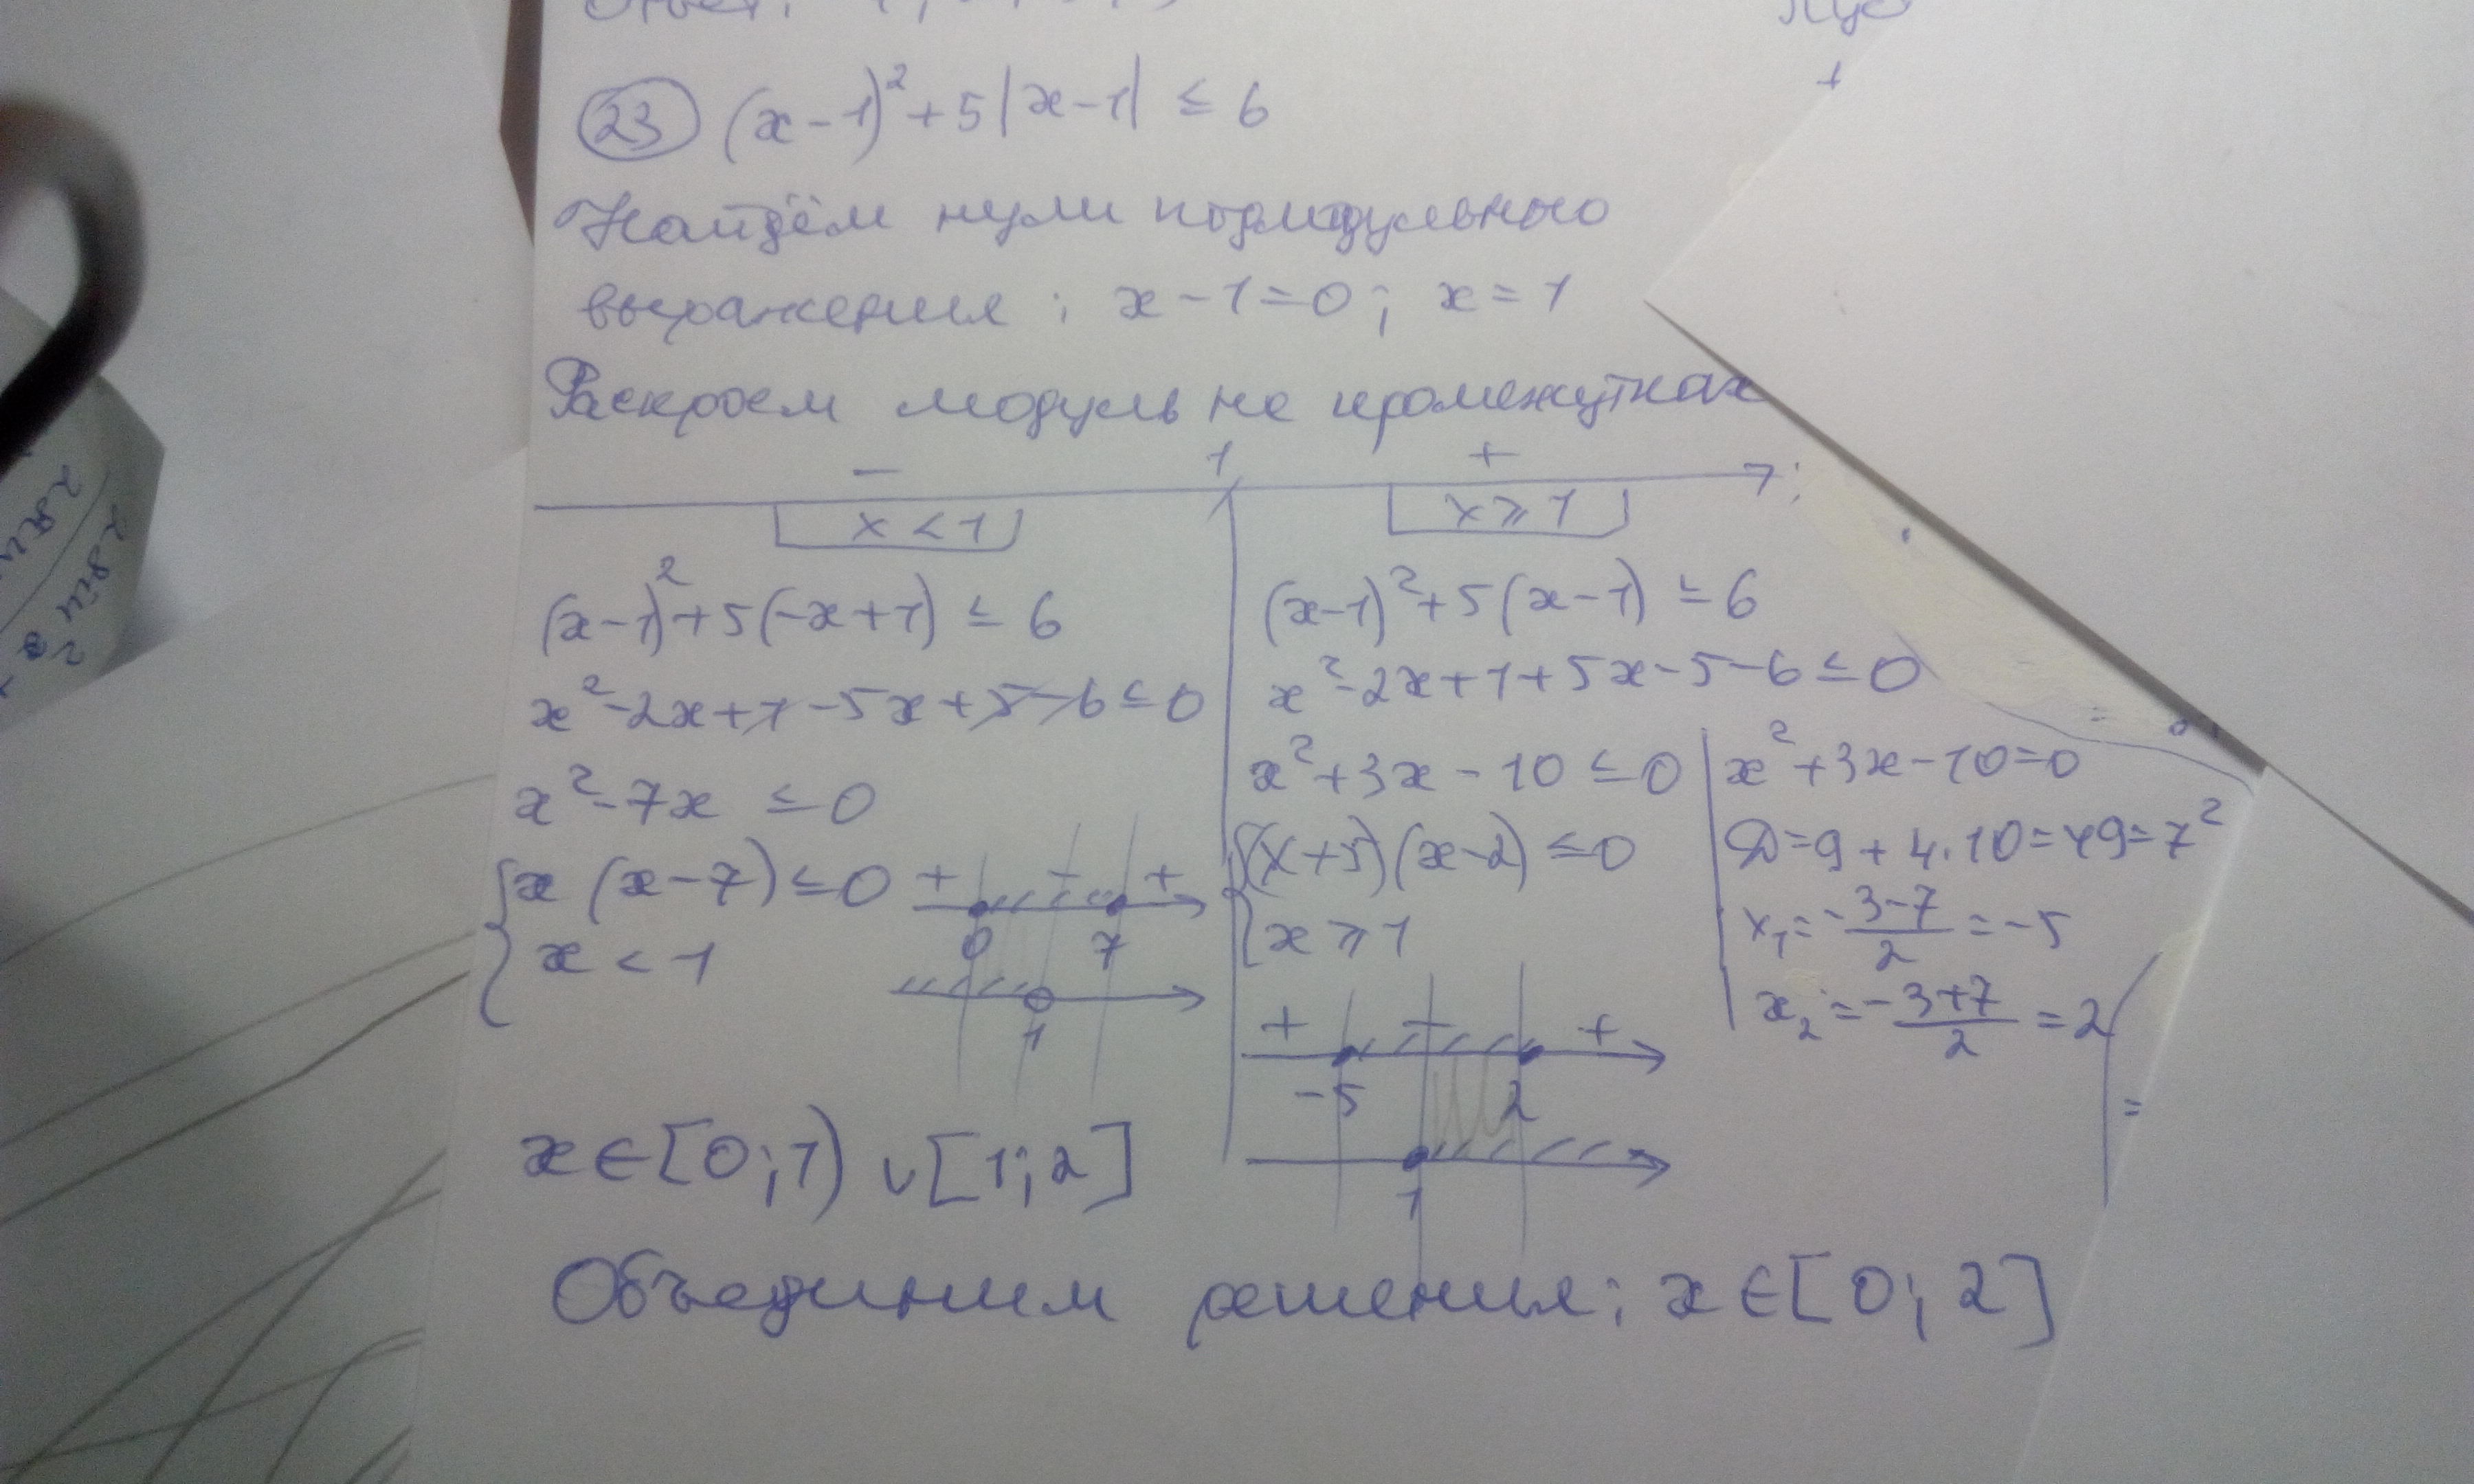 23 (x-1)²+5|x-1| ≤ 6
Найдём нули подмодульного
выражения: x-1=0; x=1
Раскроем модуль на промежутках
- 1 + :
x < 1 x ⩾ 1
(x-1)²+5(-x+1) ≤ 6
x²-2x+1-5x+5-6≤0
x²-7x ≤0
{x (x-7)≤0
x < 1
+ - +
0 7
1
(x-1)²+5(x-1) ≤ 6
x²-2x+1+5x-5-6≤0
x²+3x-10 ≤0
{(x+5)(x-2) ≤0
x ⩾ 1
x²+3x-10=0
D=9+4·10=49=7²
x₁=-3-7/2=-5
x₂=-3+7/2=2
+ - +
-5 2
1
x∈[0;1) ∪[1;2]
Объединим решения: x∈[0;2]